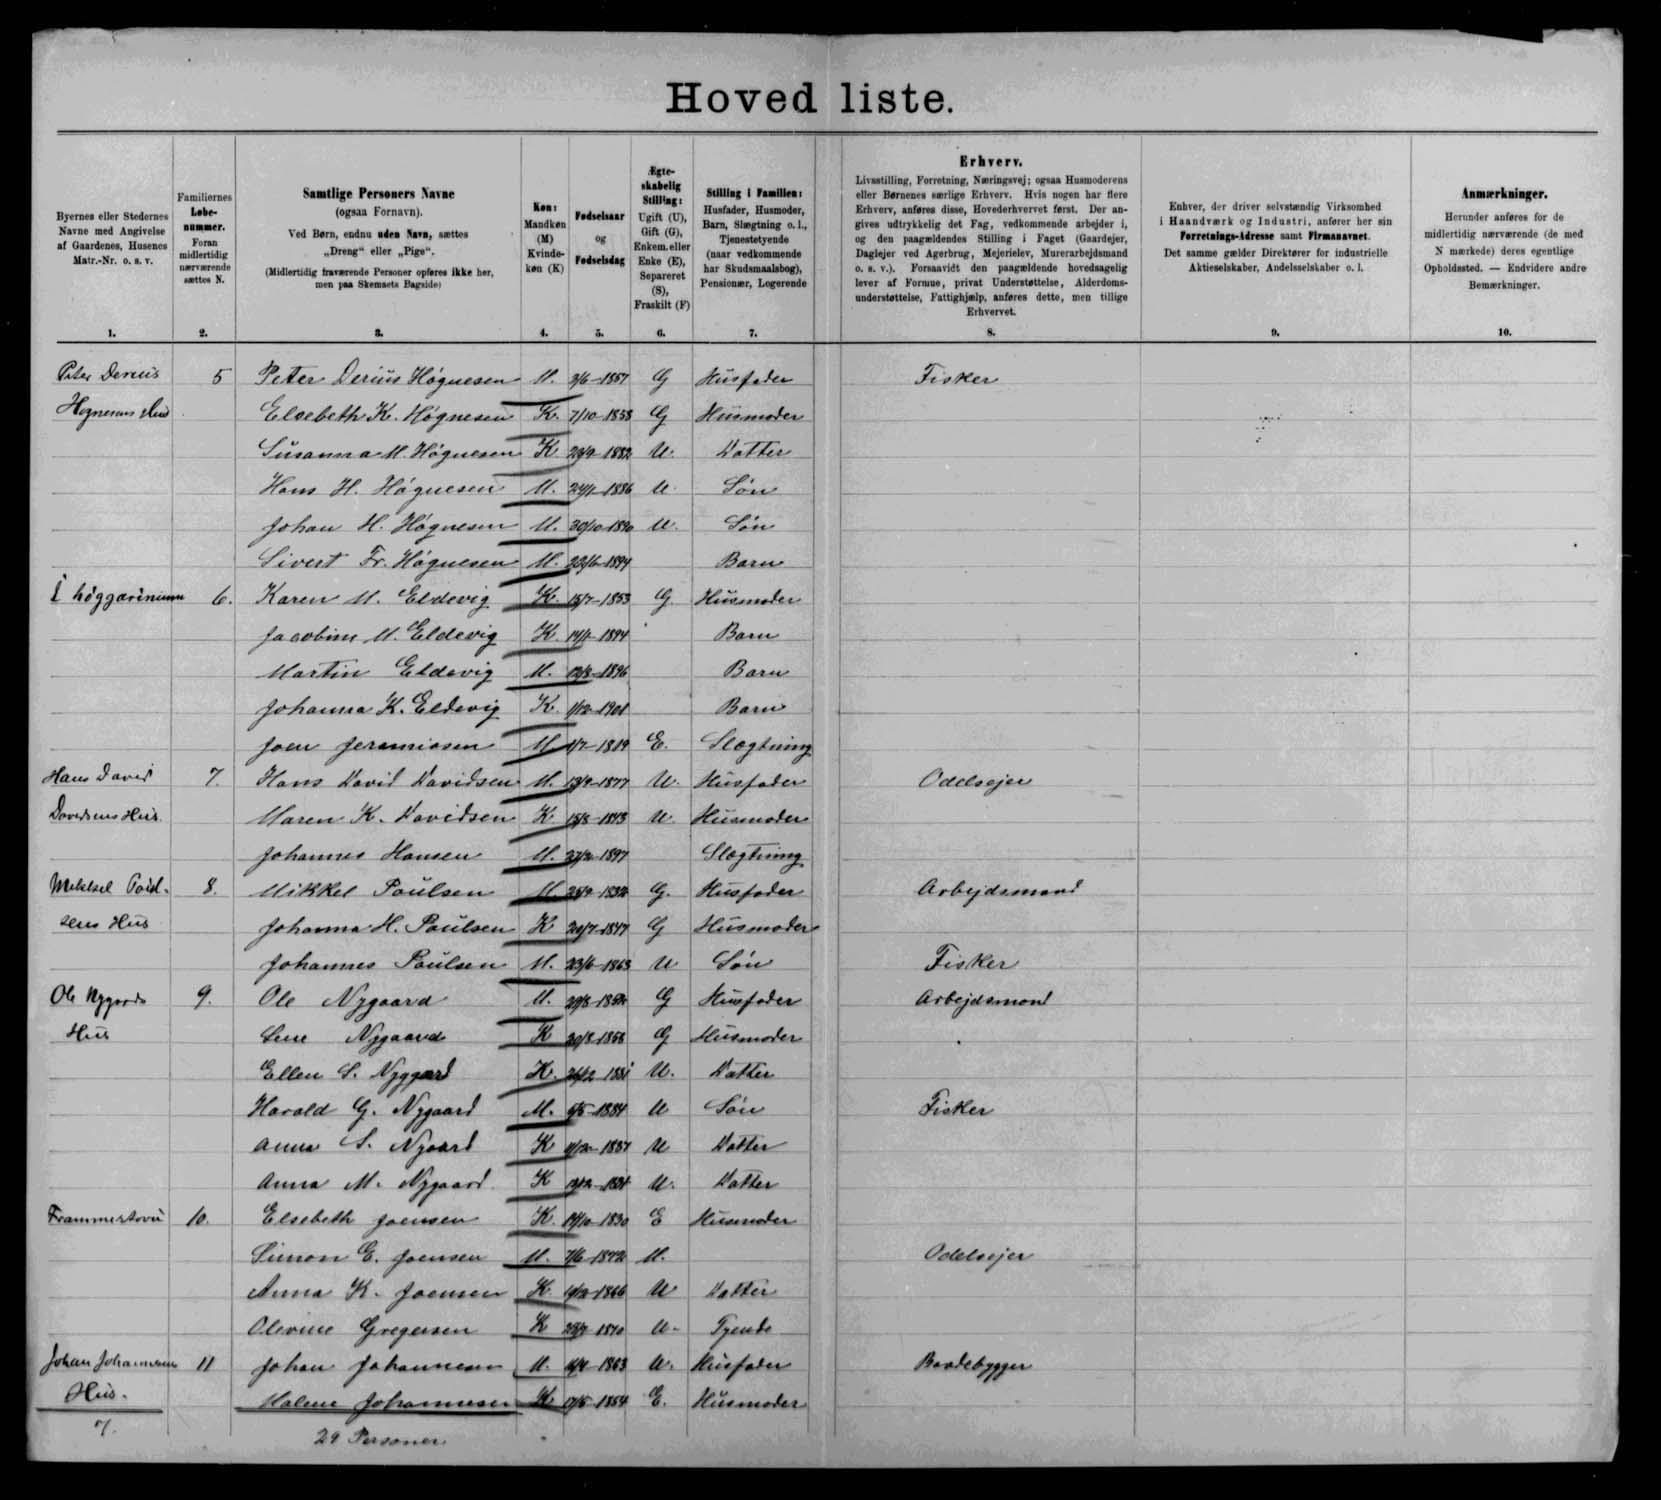 Hovedliste.
Byernes eller Stedernes Navne med Angivelse af Gaardenes, Husenes Matr.-Nr. o. s. v.
Familiernes Løbenummer. Foran midlertidig nærværende sættes N.
Samtlige Personers Navne
(ogsaa Fornavn).
Ved Børn, endnu uden Navn, sættes
„Dreng“ eller „Pige“.
(Midlertidig fraværende Personer opføres ikke her, men paa Skemaets Bagside)
Køn: Mandkøn (M) Kvindekøn (K)
Fødselsaar og Fødselsdag
Ægteskabelig Stilling: Ugift (U), Gift (G), Enkem. eller Enke (E), Separeret (S), Fraskilt (F)
Stilling i Familien: Husfader, Husmoder, Barn, Slægtning o. l., Tjenestetyende (naar vedkommende har Skudsmaalsbog), Pensionær, Logerende
Erhverv.
Livsstilling, Forretning, Næringsvej; ogsaa Husmoderens
eller Børnenes særlige Erhverv. Hvis nogen har flere
Erhverv, anføres disse, Hovederhvervet først. Der an-
gives udtrykkelig det Fag, vedkommende arbejder i,
og den paagældendes Stilling i Faget (Gaardejer,
Daglejer ved Agerbrug, Mejerielev, Murerarbejdsmand
o. s. v.). Forsaavidt den paagældende hovedsagelig
lever af Formue, privat Understøttelse, Alderdoms-
understøttelse, Fattighjælp, anføres dette, men tillige
Erhvervet.
Enhver, der driver selvstændig Virksomhed
i Haandværk og Industri, anfører her sin
Forretnings-Adresse samt Firmanavnet.
Det samme gælder Direktører for industrielle
Aktieselskaber, Andelsselskaber o. l.
Anmærkninger.
Herunder anføres for de
midlertidig nærværende (de med
N mærkede) deres egentlige
Opholdssted. — Endvidere andre
Bemærkninger.
1. 2. 3. 4. 5. 6. 7. 8. 9. 10.
Peter Derius 5 Peter Derius Høgnesen M. 3/6-1857 G Husfader Fisker
Høgnesens Hus Elsebeth K. Høgnesen K. 7/10-1858 G Husmoder
Susanna M. Høgnesen K 1882 U. Datter
Hans H. Høgnesen M. 1886 U Søn
Johan H. Høgnesen M. 30/10-1890 U. Søn
Sivert Fr. Høgnesen M. 1894 Barn
6. Karen M. Eldevig K. 15/7-1853 G. Husmoder
Jacobine M. Eldevig K. 1894 Barn
Martin Eldevig M. 12/8-1896 Barn
Johanna K. Eldevig K. 1/12-1901 Barn
Joen Jeremiasen M. 1/7-1819 E. Slægtning
Hans David 7. Hans David Davidsen M. 13/9-1877 U. Husfader Odelsejer
Davidsens Hus. Maren K. Davidsen K. 15/8-1843 U Husmoder
Johannes Hansen M. 27/2-1897 Slægtning
8. Mikkel Poulsen M. G. Husfader Arbejdsmand
sens Hus Johanna H. Poulsen K 1847 G Husmoder
Johannes Poulsen M. 23/6-1863 U Søn Fisker
Ole Nygaards 9. Ole Nygaard M. G Husfader Arbejdsmand
Hus Sene Nygaard K 20/8-1858 G Husmoder
Ellen S. Nygaard K. 1881 U. Datter
Harald G. Nygaard M. 1884 U Søn Fisker
Anna S. Nygaard K 1887 U Datter
Anna M. Nygaard K U. Datter
Frammistovu 10. Elsebeth Joensen K. 14/10-1830 E Husmoder
Simon E. Joensen M. 7/6-1872 U. Odelsejer
Anna K. Joensen K. 1866 U Datter
Olevine Gregersen K 1870 U. Tyende
Johan Johannesens 11 Johan Johannesen M. 1863 U. Husfader Baadebygger
Hus. Malene Johannesen K. 17/5-1854 E. Husmoder
7. 29 Personer